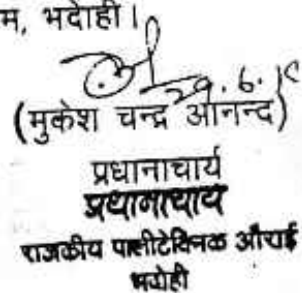 म, भदोही।
29.6.
(मुकेश चन्द्र आनन्द)
प्रधानाचार्य
प्रधानाचार्य
राजकीय पालीटेक्निक औराई
भदोही